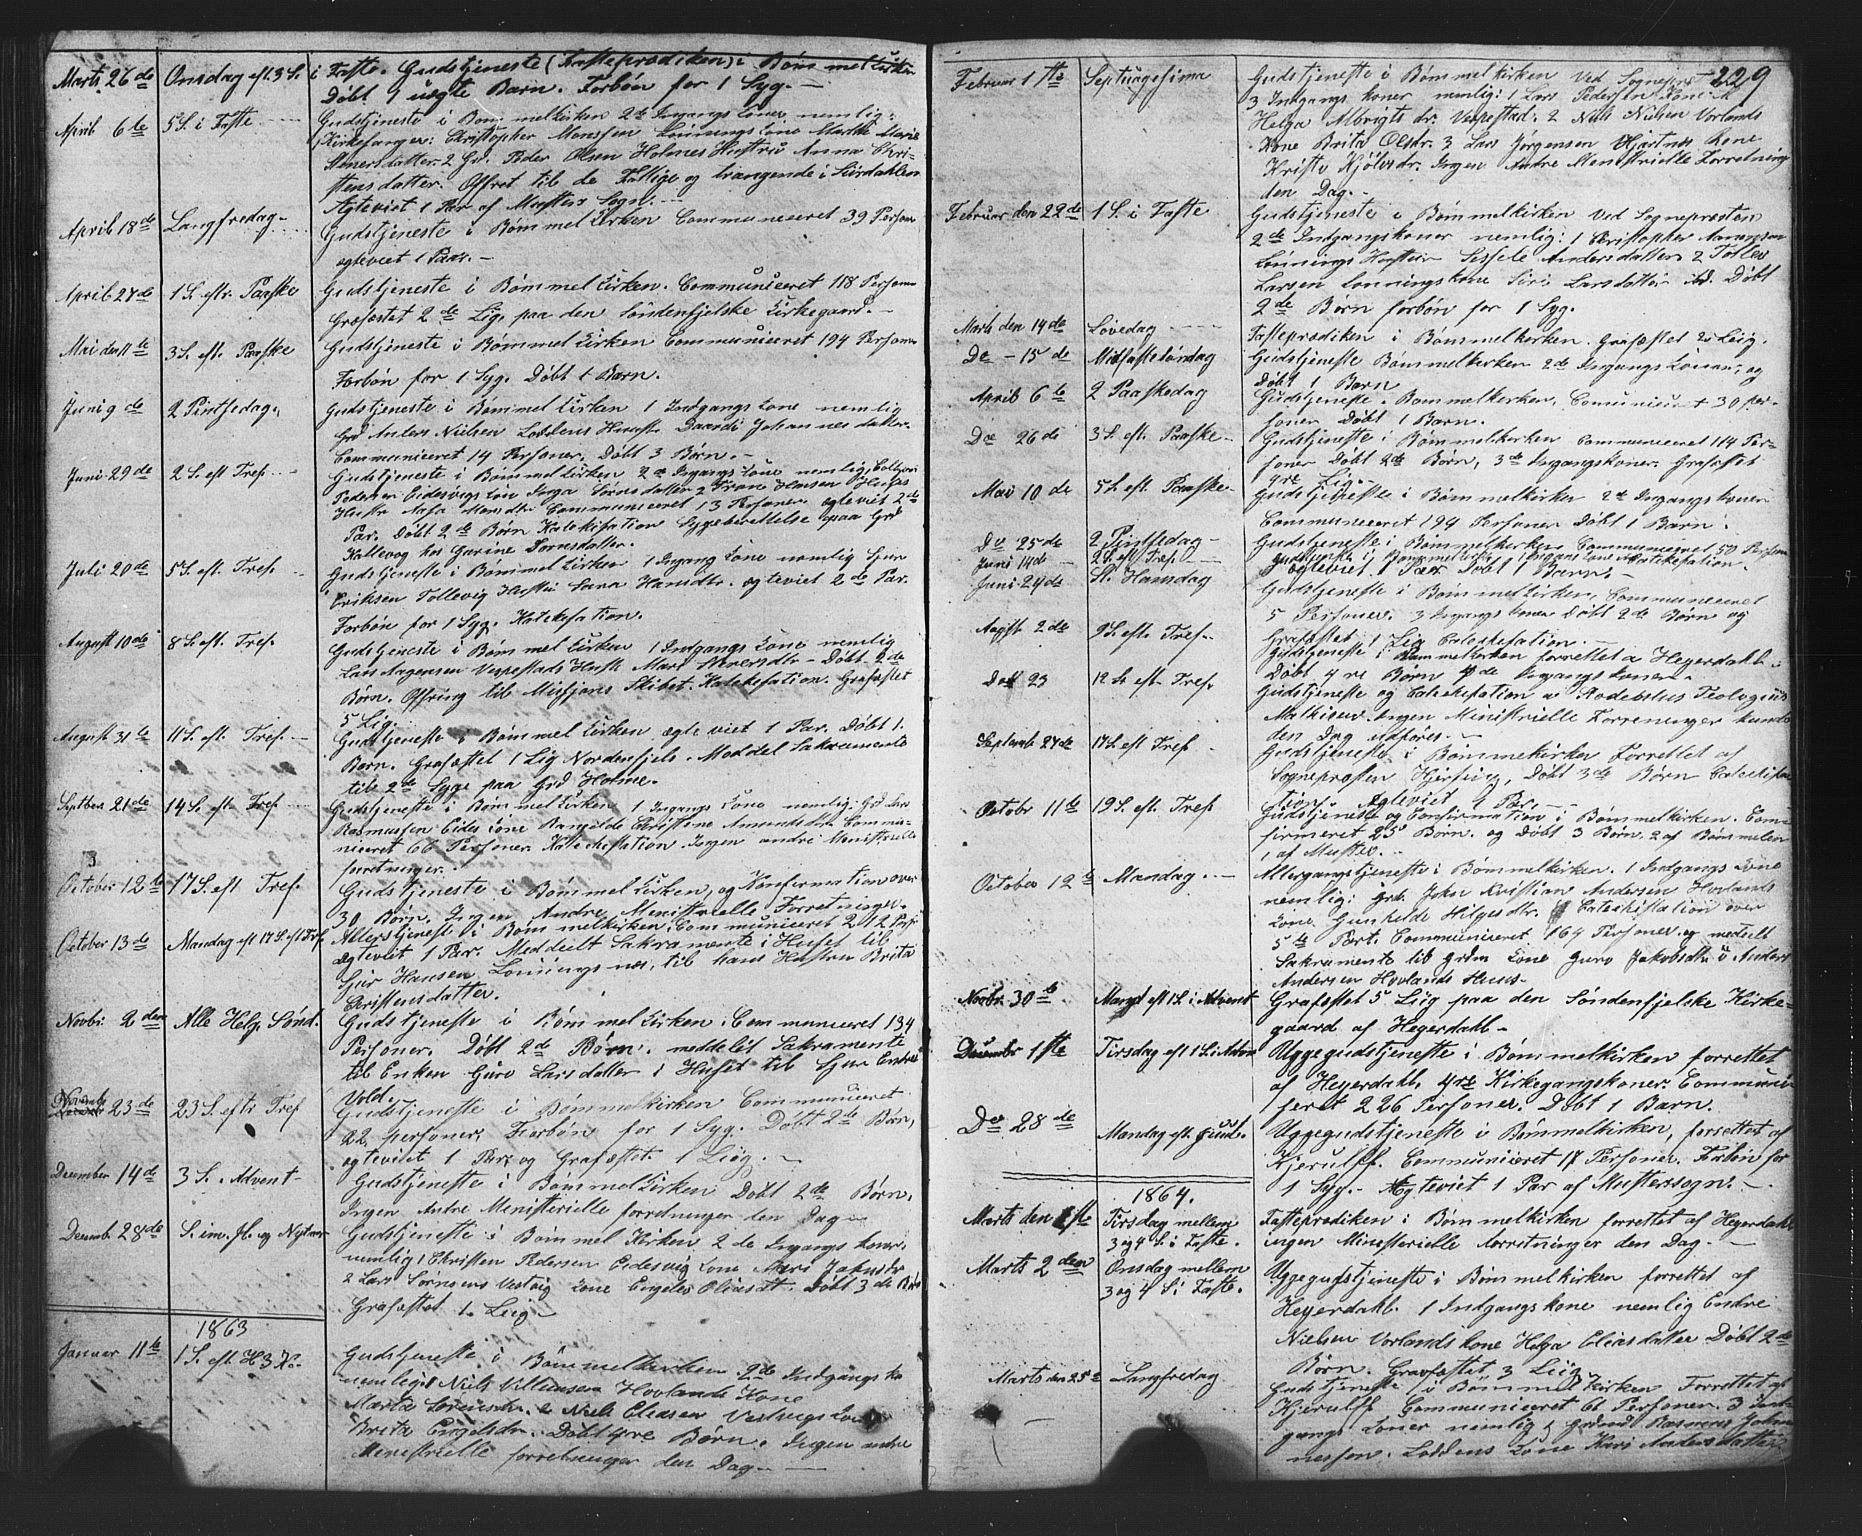 Marts 26 de Onsdag eft. 3 S. i Faste. Gudstjeneste (Fasteprædiken) i Bømmelkirken
Døbt 1 uægte Barn. Forbøn for 1 Syg. —
April 6te 5 S. i Faste Gudstjeneste i Bømmelkirken 2de Ingangs Kone nemlig:
Kirkesanger: Christopher Monssen Lønnings Kone Marthe Marie
Stenersdatter. 2 Grd. Peder Olsen Holmes Hustru Anna Chri-
stensdatter. Offret til de Fattige og trængende i Sirdahlen
Ægteviet 1 Par af Mosters Sogn. —
April 18de Langfredag. — Gudstjeneste i Bømmelkirken Communiceret 39 Person
ægteviet 1 Par. —
April 27de 1 S. eftr. Paaske Gudstjeneste i Bømmelkirken. Communiceret 118 Personer
Græfæstet 2de Lig paa den Søndenfjelske Kirkegaard. —
Mai den 11te 3 S. eft. Paaske Gudstjeneste i Bømmelkirken Communiceret 194 Personer
Forbøn for 1 Syg. Døbt 1 Barn.
Juni 9 de 2 Pintsedag. Gudstjeneste i Bømmelkirken 1 Indgangs Kone nemlig
Grd Anders Nielsen Loddens Hustr. Daardi Johannesdatter.
Communiceret 14 Personer. Døbt 3 Børn. —
Juni 29 de 2 S. eft Tref. Gudstjeneste i Bømmelkirken 2de Ingangs Kone nemlig
Pedersen Eidesvigs Kone Inga 2 Hansen
Hustr Communiceret 13 Personer ægteviet 2de
Par. Døbt 2de Børn Katekisation Sygeberettelse paa Grd
Kallevog hos Garine
Juli 20 de 5 S. eft. Tref. Gudstjeneste i Bømmelkirken 1 Ingang Kone nemlig Sjur
Eriksen Tollevig Hustru Hansdtr. ægteviet 2de Par.
Forbøn for 1 Syg. Katekisation.
August 10de 8 S. eft. Tref. Gudstjeneste i Bømmelkirken 1 Indgangs Kone nemlig
Lars Aagesen Vespestads Hustr Mari Døbt 2de
Børn. Offring til Misjions Skibet. Katekisation. Græfæstet
5 Lig.
August 31 te 11 S. eft. Tref. — Gudstjeneste i Bømmelkirken ægteviet 1 Par. Døbt 1.
Barn. Græfæstet 1 Lig Nordenfjels. Meddel Sakramente
til 2de Syge paa Grd Holme.
Septber 21de 14 S. eft. Tref Gudstjeneste i Bømmelkirken 1 Ingangs Kone nemlig: Grd Lars
Rasmussen Eides Kone Ranjilde Christine Amundsdtr. Commu-
niceret 66 Personer. Katekisation. Ingen andre Ministrielle
forretninger.
October 12te 17 S. eft Tref. Gudstjeneste i Bømmelkirken, og Konfermation over
30 Børn. Ingen Andre Ministrielle Forretninger.
October 13 de Mandag eft 17 S. eft Tref. Altertjeneste i Bømmelkirken Communiceret 212 Pers
ægteviet 1 Par. Meddeilt Sakramente i Huset til
Sjur Hansen Lønningsnæs, til hans Hustru Brita
Christensdatter.
Novbr. 2 den Alle Helg. Sønd. Gudstjeneste i Bømmelkirken. Communiceret 134
Personer. Døbt 2de Børn. meddelet Sakramente
til Enken Guro Larsdatter i Huset til Sjur Endre
Vold.
Novembr 23 de 23 S. eftr Tref Gudstjeneste i Bømmelkirken Communiceret
22 personer. Forbøn for 1 Syg. Døbt 2de Børn,
ægteviet 1 Par og Græfæstet 1 Liig. —
December 14 de 3 S. i Advent — Gudstjeneste i Bømmelkirken Døbt 2de Børn.
Ingen Andre Ministerielle forretninger den Dag —
Decemb. 28de S. im. Jl. og Nytaar Gudstjeneste i Bømmel Kirken 2 de Ingangs koner.
nemlig 1 Christen Pedersen Eidesvig Kone Mari Jakobsdr
2 Lars Sørnsens Vestvig Kone Engeles Oliasdt. Døbt 3 de Børn
Græfæstet 1. Liig —
1863
Januar 11te 1 S. eft. H 3 K. Gudstjeneste i Bømmelkirken. 2de Indgangs ko
nemlig 1 Niels Villumsen Hovlands Kone
Marta 2 Niels Eliasen Vestvigs Kone
Brita Engelsdr. Døbt 4re Børn. Ingen andre
Ministrielle forretninger den Dag. —
229
Februar 1 ste Septuagesima Gudstjeneste i Bømmelkirken Ved Sognepræst
3 Indgangs koner nemlig: 1 Lars Pedersen Kone
Helga Albrigts dr. Vespestad. 2 Niels Nielsen Vorlands
Kone Brita Olsdr. 3 Lars Jørgensen Hjartnes Kone
Kristi Kjølvsdr. Ingen Andre Menistrielle Forretning
den Dag. —
Februar den 22de 1 S. i Faste Gudstjeneste i Bømmelkirken Ved Sognepræsten
2de Indgangskoner nemlig: 1 Christopher
Lønnings Hustru Sissele Andersdatter 2 Tolles
Larsen Lønningskone Siri Larsdatter ibd. Døbt
2de Børn forbøn for 1 Syg.
Marts den 14de Løvedag Fasteprædiken i Bømmelkirken. Græfæstet 2 Liig.
Do — 15 de Midfastesøndag Gudstjeneste Bømmelkirken 2de Ingangs Koner, og
Døbt 1 Barn
April 6te 2 Paaskedag Gudstjeneste i Bømmelkirken. Comuniceret 30 per-
soner Døbt 1 Barn.
Do 26 de 3 S. eft. Paaske — Gudstjeneste i Bømmelkirken Communiceret 114 Per-
soner Døbt 2de Børn, 3de Ingangskoner. Græfæstet
4re Lig. —
Mai 10 de 5 S. eft. Paaske — Gudstjeneste i Bømmelkirken 2de Ingangs koner
Communiceret 194 Personer Døbt 1 Barn.
Do 25de 2 Pintsedag — Gudstjeneste i Bømmelkirken Communiceret 50 Person
Juni 14de 2 S. eft Tref Gudstjeneste i Bømmelkirken Ingangs Kone Katekisation.
ægteviet 1 Par Døbt 1 Barn. —
Juni 24de St. Hansdag Gudstjeneste i Bømmelkirken, Communiceret
5 Personer. 3 Ingangs koner Døbt 2de Børn og
Græfæstet 1 Lig Catekisation. —
Augst 2de 9 S. eft. Tref. Gudstjeneste i Bømmelkirken forrettet a Heyerdahl.
Døbt 4 re Børn de Ingangskoner —
Do 23 12 S. eft. Tref. Gudstjeneste og Catekisation a
Mathisen. Ingen Ministrielle Forreninger kunde
den Dag udføres. —
Septemb 27de 17 S. eft Tref — Gudstjeneste i Bømmelkirken Forrettet af
Sognepræsten Døbt 3de Børn Catekisa
tion. Ægteviet 1 Par. —
Octobr 11te 19 S. eft. Tref Gudstjeneste og Confirmation i Bømmelkirken. Con-
firmeret 25 Børn. og Døbt 3 Børn. 2 af Bømmelen
1 af Moster. —
October 12te Mandag. — Altergangstjeneste i Bømmelkirken. 1 Indgangs Kone
nemlig: Grd. John Kristian Andersen Hovlands
Kone Gunhilde Hilgesdtr. Catekisation over
5 te Part. Communiceret 164 Personer. og medelt
Sakramente til Grdm Kone Guro Jakobsdtr i Anders
Andersen Hovlands Huus.
Novbr. 30te Mangd eft 1 S. i Advent Græfæstet 5 Liig paa den Søndenfjelske Kirke-
gaard af Heyerdahl —
Decembr 1ste Tirsdag eft 1 S. i Adven Uggegudstjeneste i Bømmelkirken forrettet
af Heyerdahl. 4re Kirkegangskoner. Communi-
seret 226 Personer. Døbt 1 Barn.
Do 28 de Mandag eft. Juul. Uggegudstjeneste i Bømmelkirken, forrettet af
Kjerulff. Communiseret 17 Personer. Forbøn for
1 Syg. — Ægteviet 1 Par af Mosterssogn. —
1864.
Marts den 1ste Tirsdag mellem 3 og 4 S. i Faste. Fasteprædiken i Bømmelkirken forrettet af Heyerdahl
ingen Ministerielle forretninger den Dag. —
Marts 2 den Onsdag mellem 3 og 4 S. i Faste. Uggegudstjeneste i Bømmelkirken forrettet af
Heyerdahl. 1 Indgangskone nemlig Endre
Nielsen Vorlands kone Helga Eliasdatter Døbt 2de
Børn. Gravfæstet 3 Liig.
Marts den 25de Langfredag Gudstjeneste i Bømmelkirken Forrettet af
Kjerulff Communiceret 61 Personer. 3 Ind-
gangs Koner nemlig Rasmus Johan
nessen. Loddens Kone Kari Andersdatter